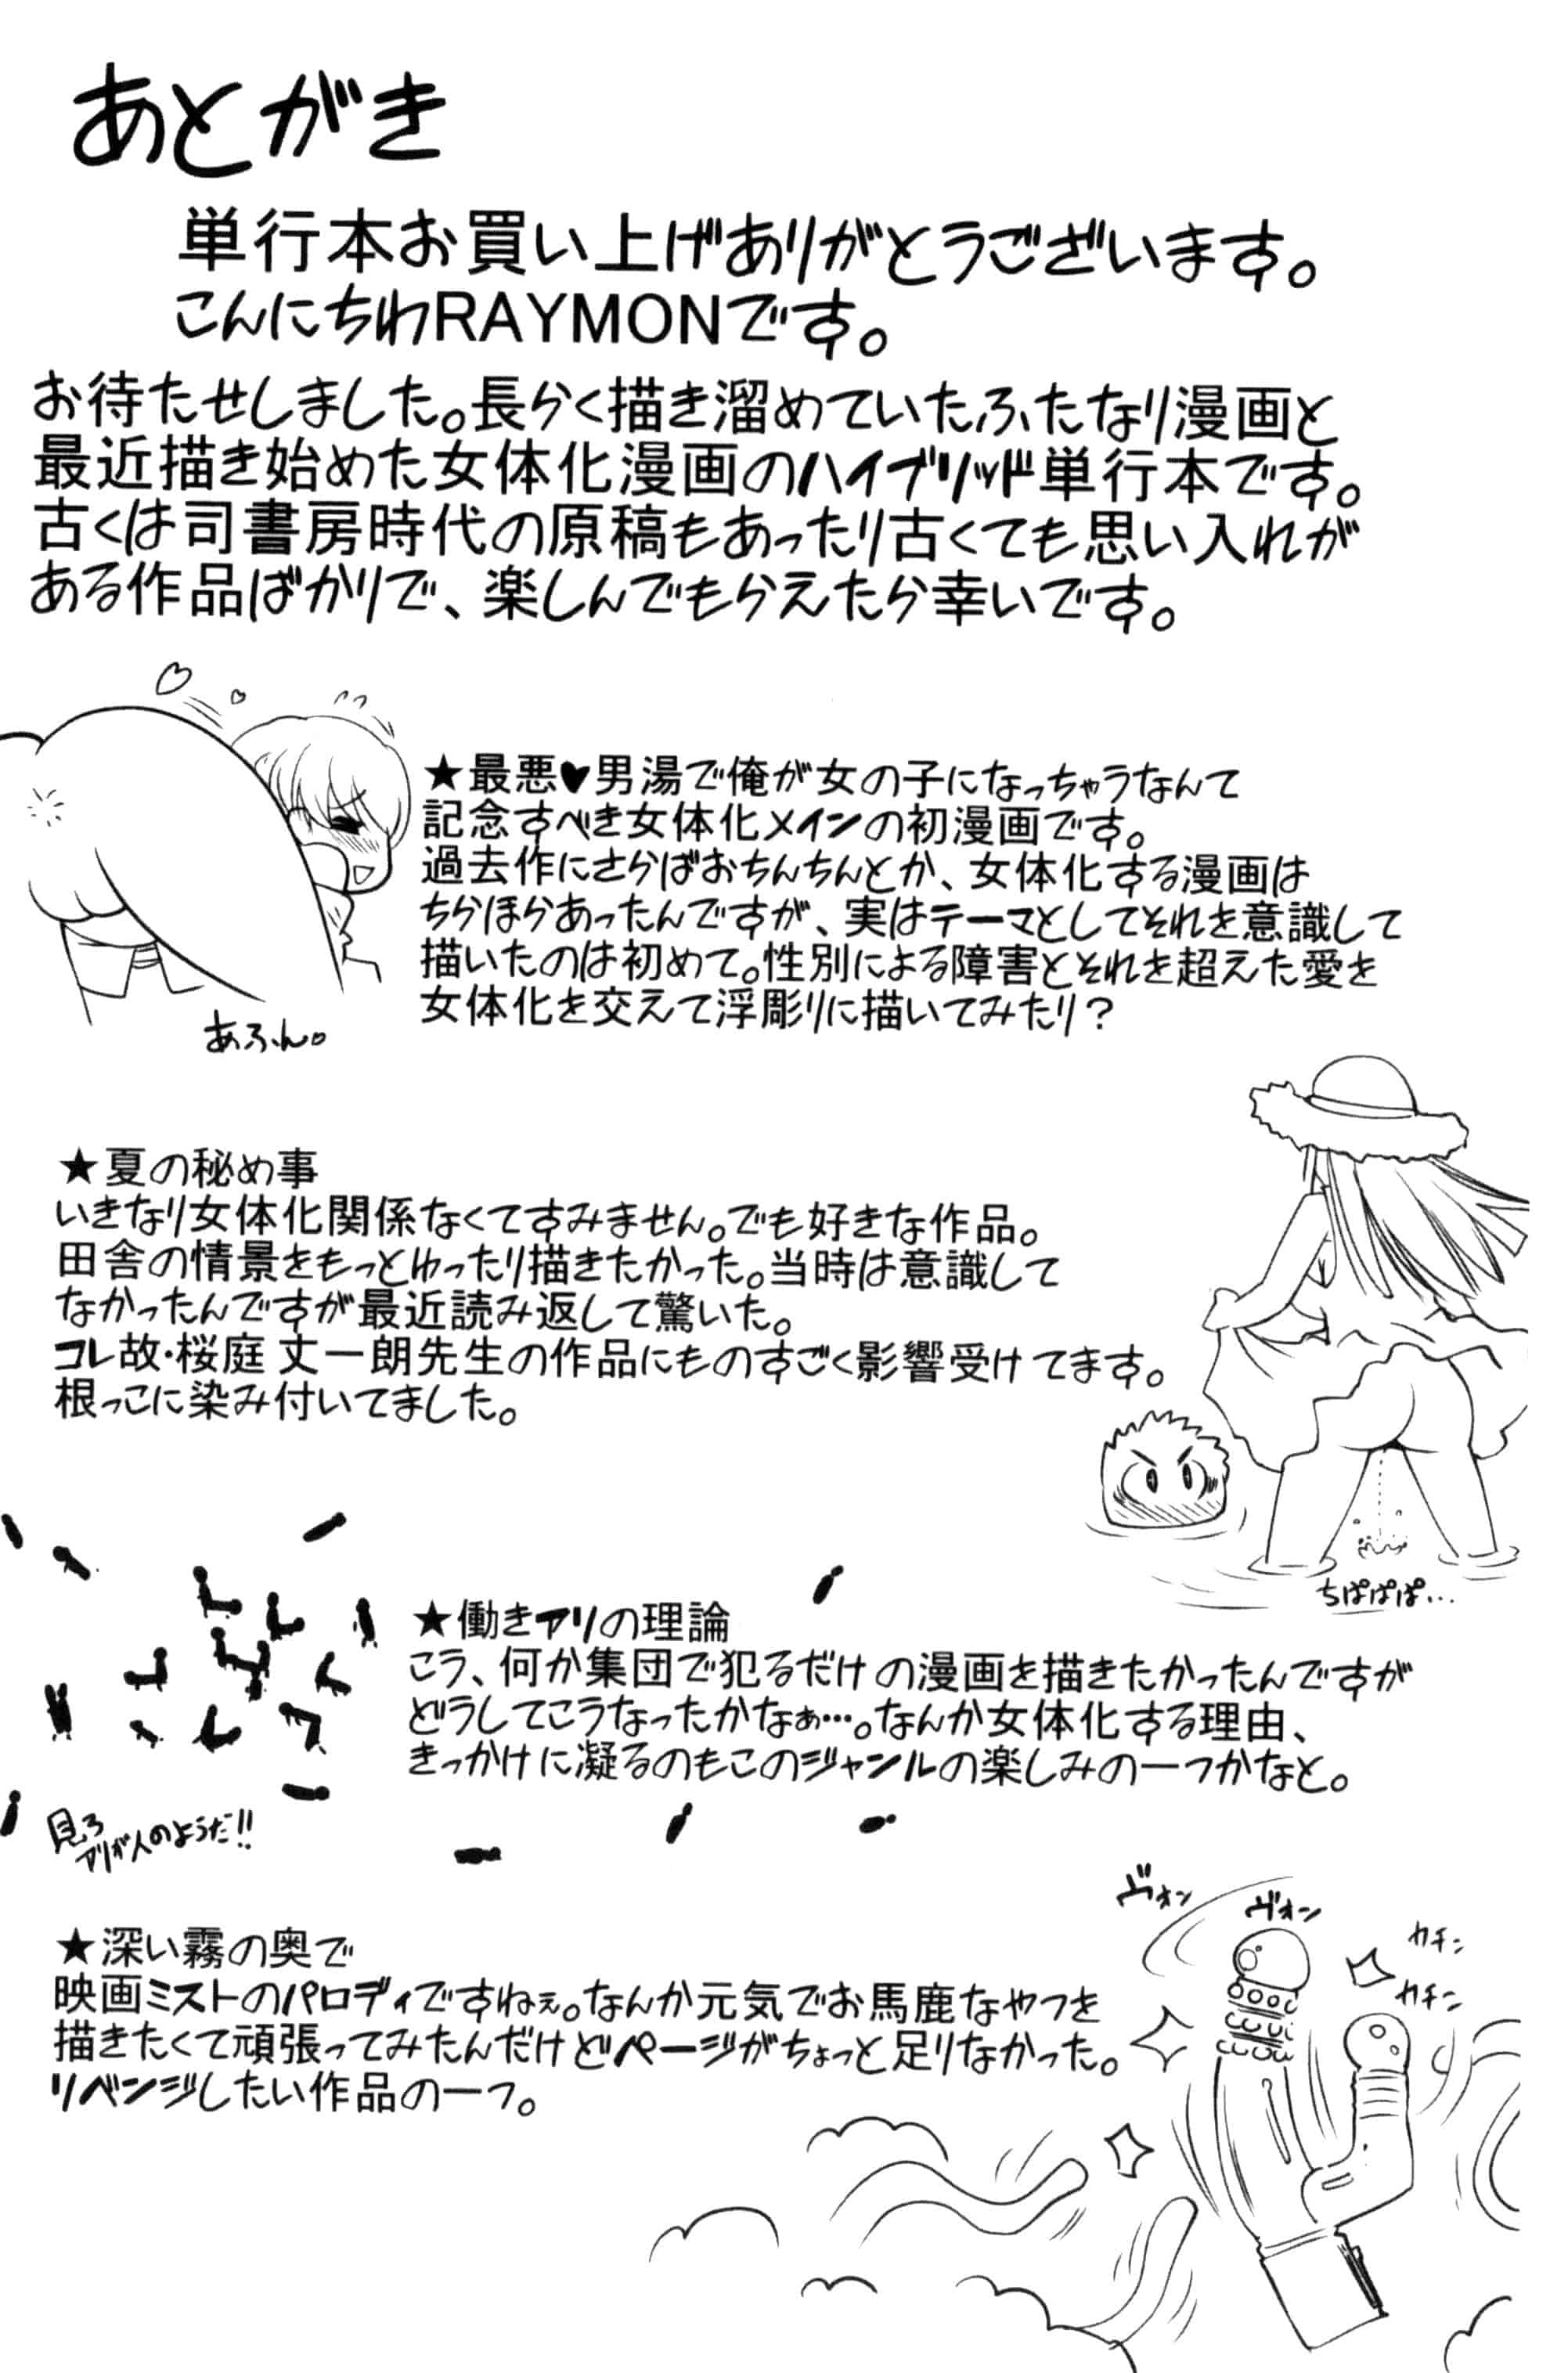 あとがき
単行本お買い上げありがとうございます。
こんにちわRAYMONです。
お待たせしました。長らく描き溜めていたふたなり漫画と
最近描き始めた女体化漫画のハイブリッド単行本です。
古くは司書房時代の原稿もあったり古くても思い入れが
ある作品ばかりで、楽しんでもらえたら幸いです。
★最悪♥男湯で俺が女の子になっちゃうなんて
記念すべき女体化メインの初漫画です。
過去作にさらばおちんちんとか、女体化する漫画は
ちらほらあったんですが、実はテーマとしてそれを意識して
描いたのは初めて。性別による障害とそれを超えた愛を
女体化を交えて浮彫りに描いてみたり?
あふん。
★夏の秘め事
いきなり女体化関係なくてすみません。でも好きな作品。
田舎の情景をもっとゆったり描きたかった。当時は意識して
なかったんですが最近読み返して驚いた。
コレ故・桜庭 丈一朗先生の作品にものすごく影響受けてます。
根っこに染み付いてました。
ちぱぱぱ…
★働きアリの理論
こう、何か集団で犯るだけの漫画を描きたかったんですが
どうしてこうなったかなぁ…。なんか女体化する理由、
きっかけに凝るのもこのジャンルの楽しみの一つかなと。
見ろ
アリが人のようだ!!
★深い霧の奥で
映画ミストのパロディですねぇ。なんか元気でお馬鹿なやつを
描きたくて頑張ってみたんだけどページがちょっと足りなかった。
リベンジしたい作品の一つ。
ヴォン
ヴォン
カチン
カチン